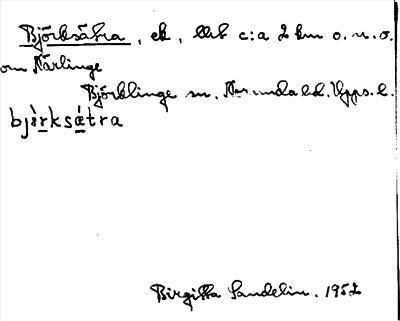 Björksätra, ek, blek c:a 2 km o.n.o.
om Närlinge
Björklinge sn, Norunda hd. Upps. l.
bjèrksǽtra
Birgitta Sandelin. 1952